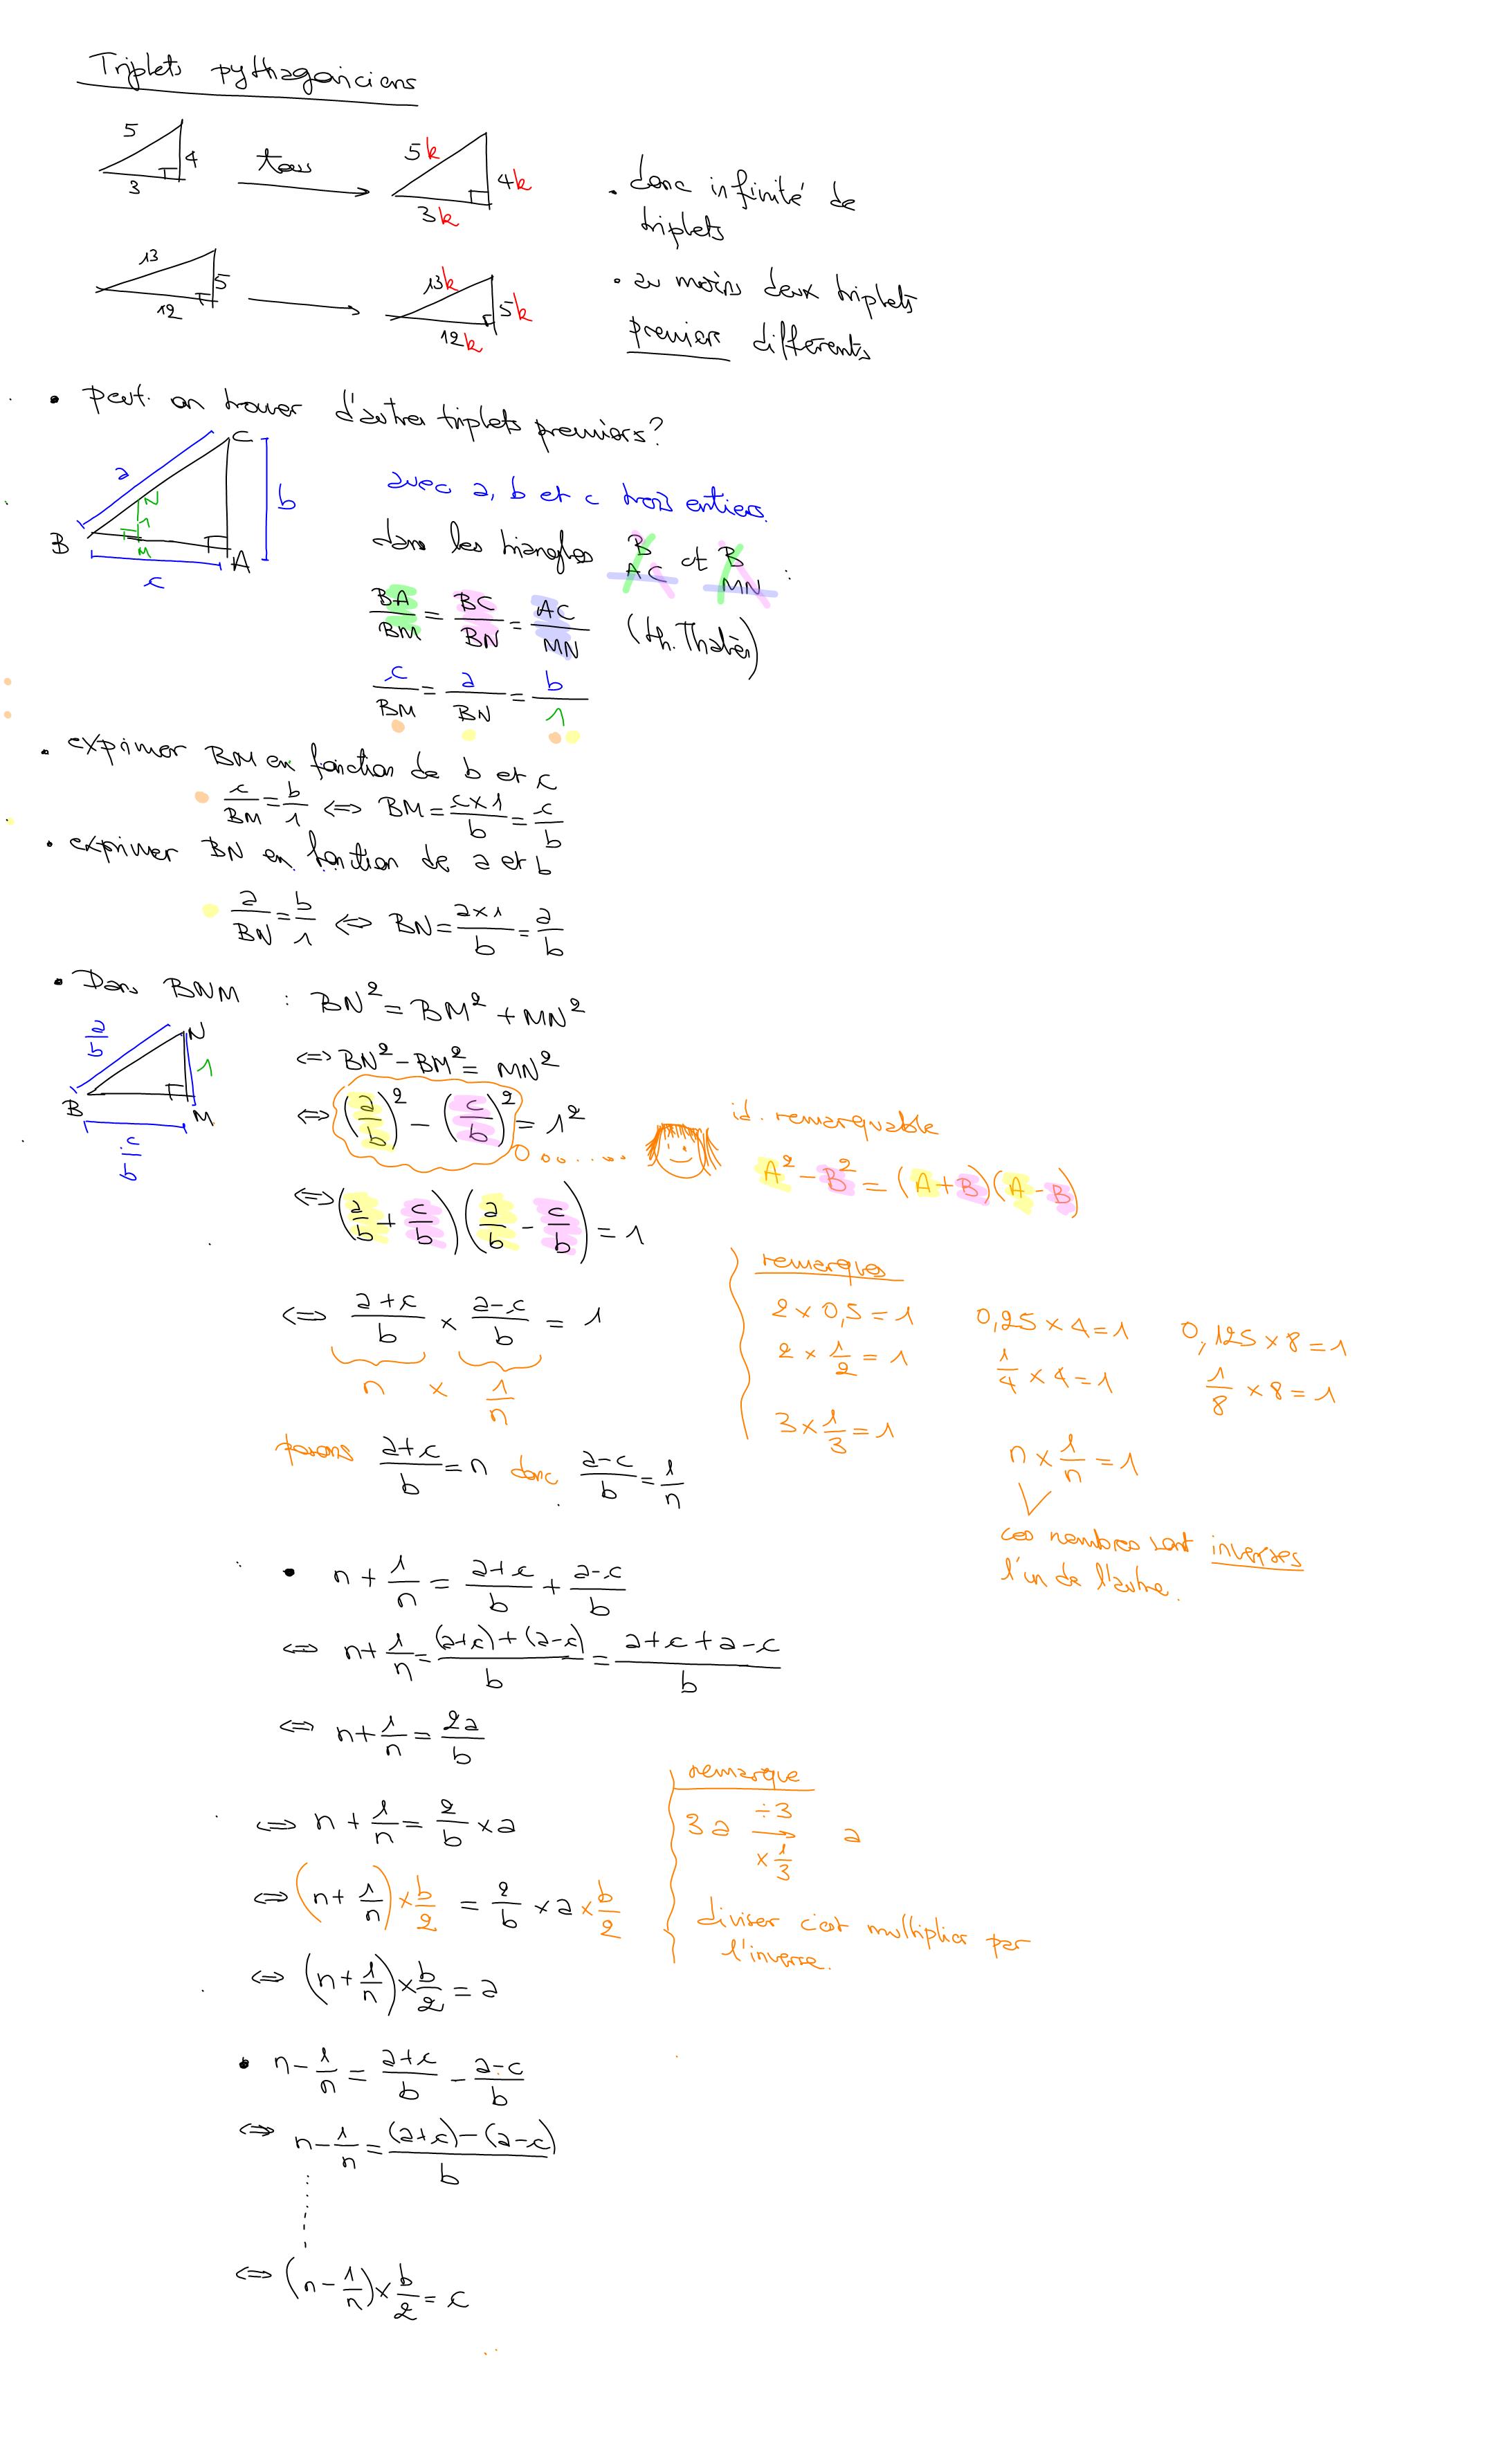 Triplets pythagoriciens
5
4
3
tous
5k
4k
3k
• donc infinité de
triplets
13
5
12
13k
5k
12k
• au moins deux triplets
premiers différents
• Peut-on trouver d'autres triplets premiers?
a
b
c
B
C
A
N
1
M
avec a, b et c trois entiers.
dans les triangles B AC et B MN :
BA/BM = BC/BN = AC/MN (th. Thalès)
c/BM = a/BN = b/1
• exprimer BM en fonction de b et c
c/BM = b/1 ⇔ BM = c×1/b = c/b
• exprimer BN en fonction de a et b
a/BN = b/1 ⇔ BN = a×1/b = a/b
• Dans BNM : BN² = BM² + MN²
a/b
N
1
B
M
c/b
⇔ BN² - BM² = MN²
⇔ (a/b)² - (c/b)² = 1²
id. remarquable
A² - B² = (A+B)(A-B)
⇔ (a/b + c/b)(a/b - c/b) = 1
⇔ a+c/b × a-c/b = 1
n × 1/n
remarques
2 × 0,5 = 1 0,25 × 4 = 1 0,125 × 8 = 1
2 × 1/2 = 1 1/4 × 4 = 1 1/8 × 8 = 1
3 × 1/3 = 1
n × 1/n = 1
ces nombres sont inverses
l'un de l'autre.
posons a+c/b = n donc a-c/b = 1/n
• n + 1/n = a+c/b + a-c/b
⇔ n + 1/n = (a+c)+(a-c)/b = a+c+a-c/b
⇔ n + 1/n = 2a/b
⇔ n + 1/n = 2/b × a
⇔ (n + 1/n) × b/2 = 2/b × a × b/2
⇔ (n + 1/n) × b/2 = a
remarque
3a ÷3 → ×1/3 a
diviser c'est multiplier par
l'inverse.
• n - 1/n = a+c/b - a-c/b
⇔ n - 1/n = (a+c)-(a-c)/b
⇔ (n - 1/n) × b/2 = c